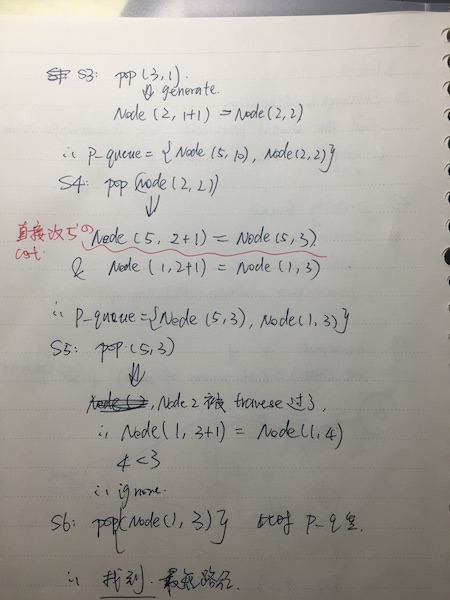 S3: pop(3,1).
⇓ generate.
Node(2, 1+1) = Node(2,2)
∴ P-queue = {Node(5,10), Node(2,2)}
S4: pop(Node(2,2))
⇓
直接改5的 Node(5, 2+1) = Node(5,3)
cost.
& Node(1,2+1) = Node(1,3)
∴ P-queue={Node(5,3), Node(1,3)}
S5: pop(5,3)
⇓
, Node2被traverse过了.
∴ Node(1, 3+1) = Node(1,4)
4<3
∴ ignore.
S6: pop{Node(1,3)} 此时 P-q空.
∴ 找到最短路径.